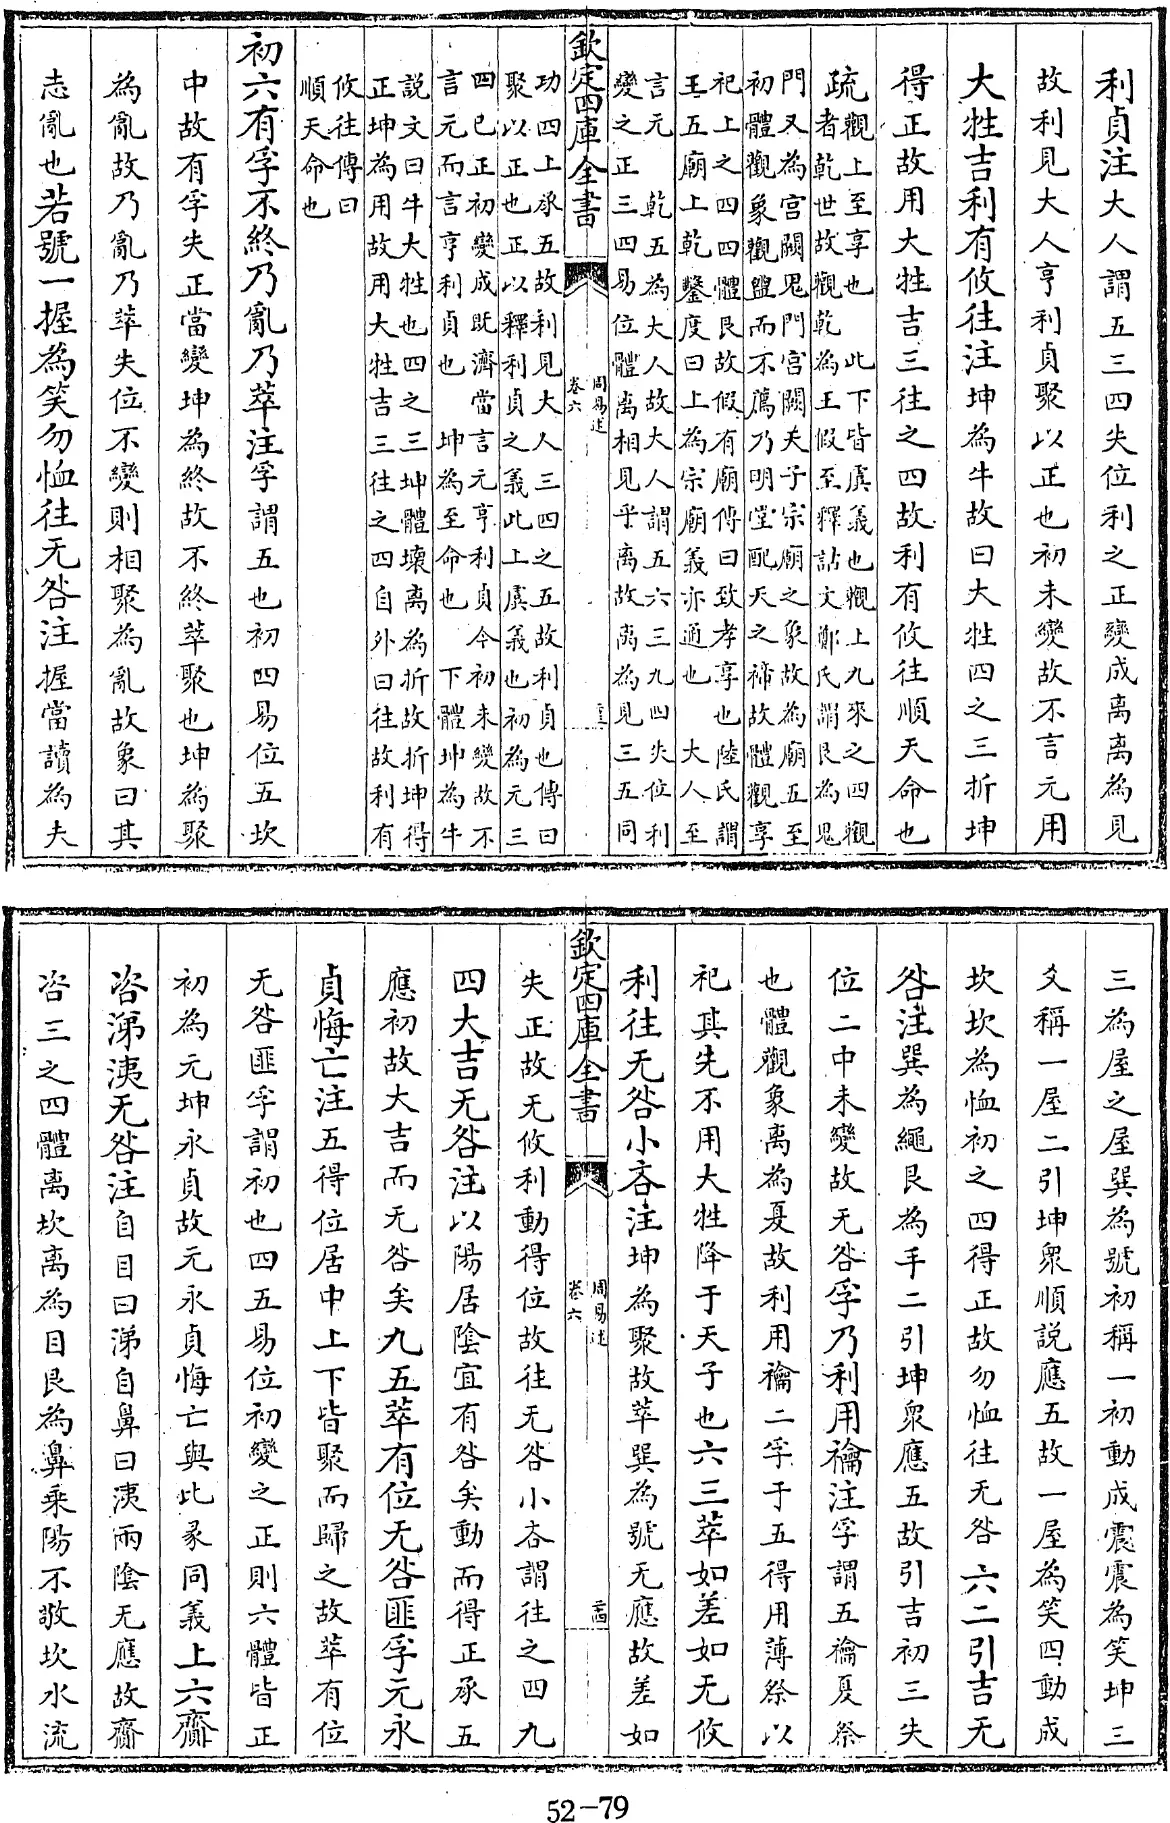 利貞注大人謂五三四失位利之正變成离离為見
故利見大人亨利貞聚以正也初未變故不言元用
大牲吉利有攸往注坤為牛故曰大牲四之三折坤
得正故用大牲吉三往之四故利有攸往順天命也
疏觀上至享也　此下皆虞義也觀上九來之四觀
者乾世故觀乾為王假至釋詁文鄭氏謂艮為鬼
門又為宮闕鬼門宮闕天子宗廟之象故為廟五至
初體觀象觀盥而不薦乃明堂配天之禘故體觀享
祀上之四四體艮故假有廟傳曰致孝享也陸氏謂
王五廟上乾鑿度曰上為宗廟義亦通也　大人至
言元　乾五為大人故大人謂五六三九四失位利
變之正三四易位體离相見乎离故离為見三五同
欽定四庫全書
周易述
卷六
功四上承五故利見大人三四之五故利貞也傳曰
聚以正也正以釋利貞之義此上虞義也初為元三
四已正初變成既濟當言元亨利貞今初未變故不
言元而言亨利貞也　坤為至命也　下體坤為牛
說文曰牛大牲也四之三坤體壞离為折故折坤得
正坤為用故用大牲吉三往之四自外曰往故利有
攸往傳曰
順天命也
初六有孚不終乃亂乃萃注孚謂五也初四易位五坎
中故有孚失正當變坤為終故不終萃聚也坤為聚
為亂故乃亂乃萃失位不變則相聚為亂故象曰其
志亂也若號一握為笑勿恤往无咎注握當讀為夫
三為屋之屋巽為號初稱一初動成震震為笑坤三
爻稱一屋二引坤衆順說應五故一屋為笑四動成
坎坎為恤初之四得正故勿恤往无咎六二引吉无
咎注巽為繩艮為手二引坤衆應五故引吉初三失
位二中未變故无咎孚乃利用禴注孚謂五禴夏祭
也體觀象离為夏故利用禴二孚于五得用薄祭以
祀其先不用大牲降于天子也六三萃如差如无攸
利往无咎小吝注坤為聚故萃巽為號无應故差如
欽定四庫全書
周易述
卷六
失正故无攸利動得位故往无咎小吝謂往之四九
四大吉无咎注以陽居陰宜有咎矣動而得正承五
應初故大吉而无咎矣九五萃有位无咎匪孚元永
貞悔亡注五得位居中上下皆聚而歸之故萃有位
无咎匪孚謂初也四五易位初變之正則六體皆正
初為元坤永貞故元永貞悔亡與比彖同義上六齎
咨涕洟无咎注自目曰涕自鼻曰洟兩陰无應故齎
咨三之四體离坎离為目艮為鼻乘陽不敬坎水流
52-79